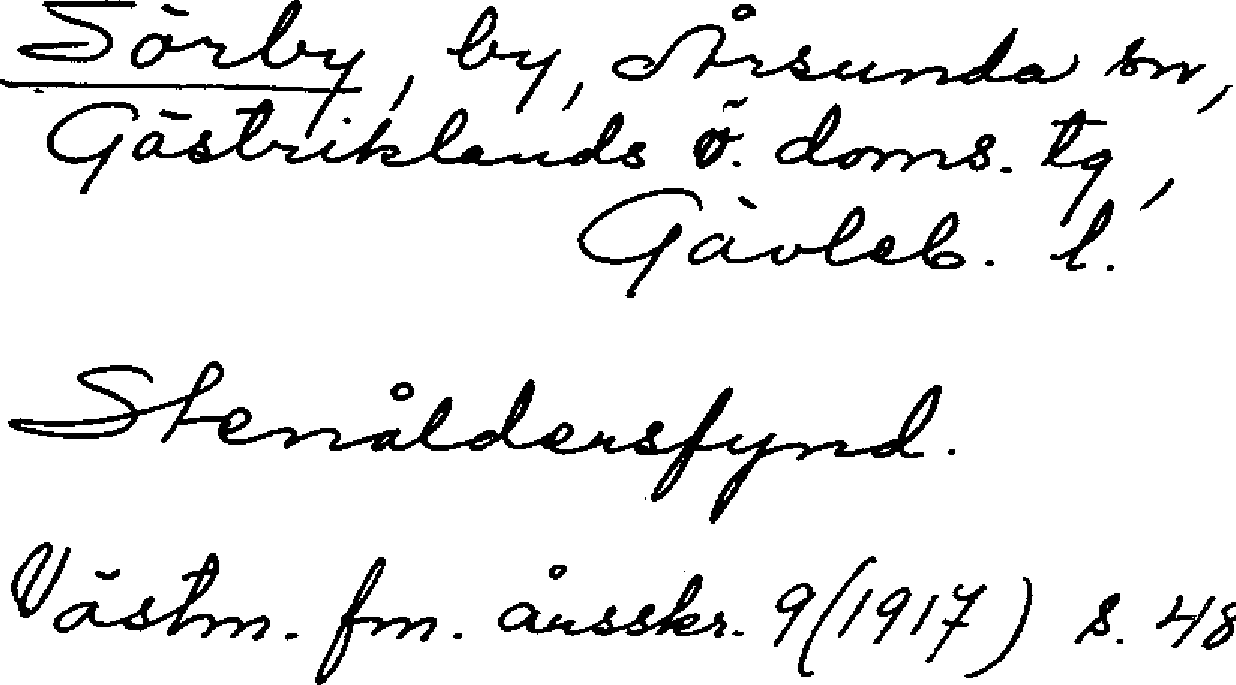 Sörby, by, Årsunda sn,
Gästriklands ö. doms. tg,
Gävleb. l.
Stenåldersfynd.
Västm. fm. årsskr. 9(1917) s. 48